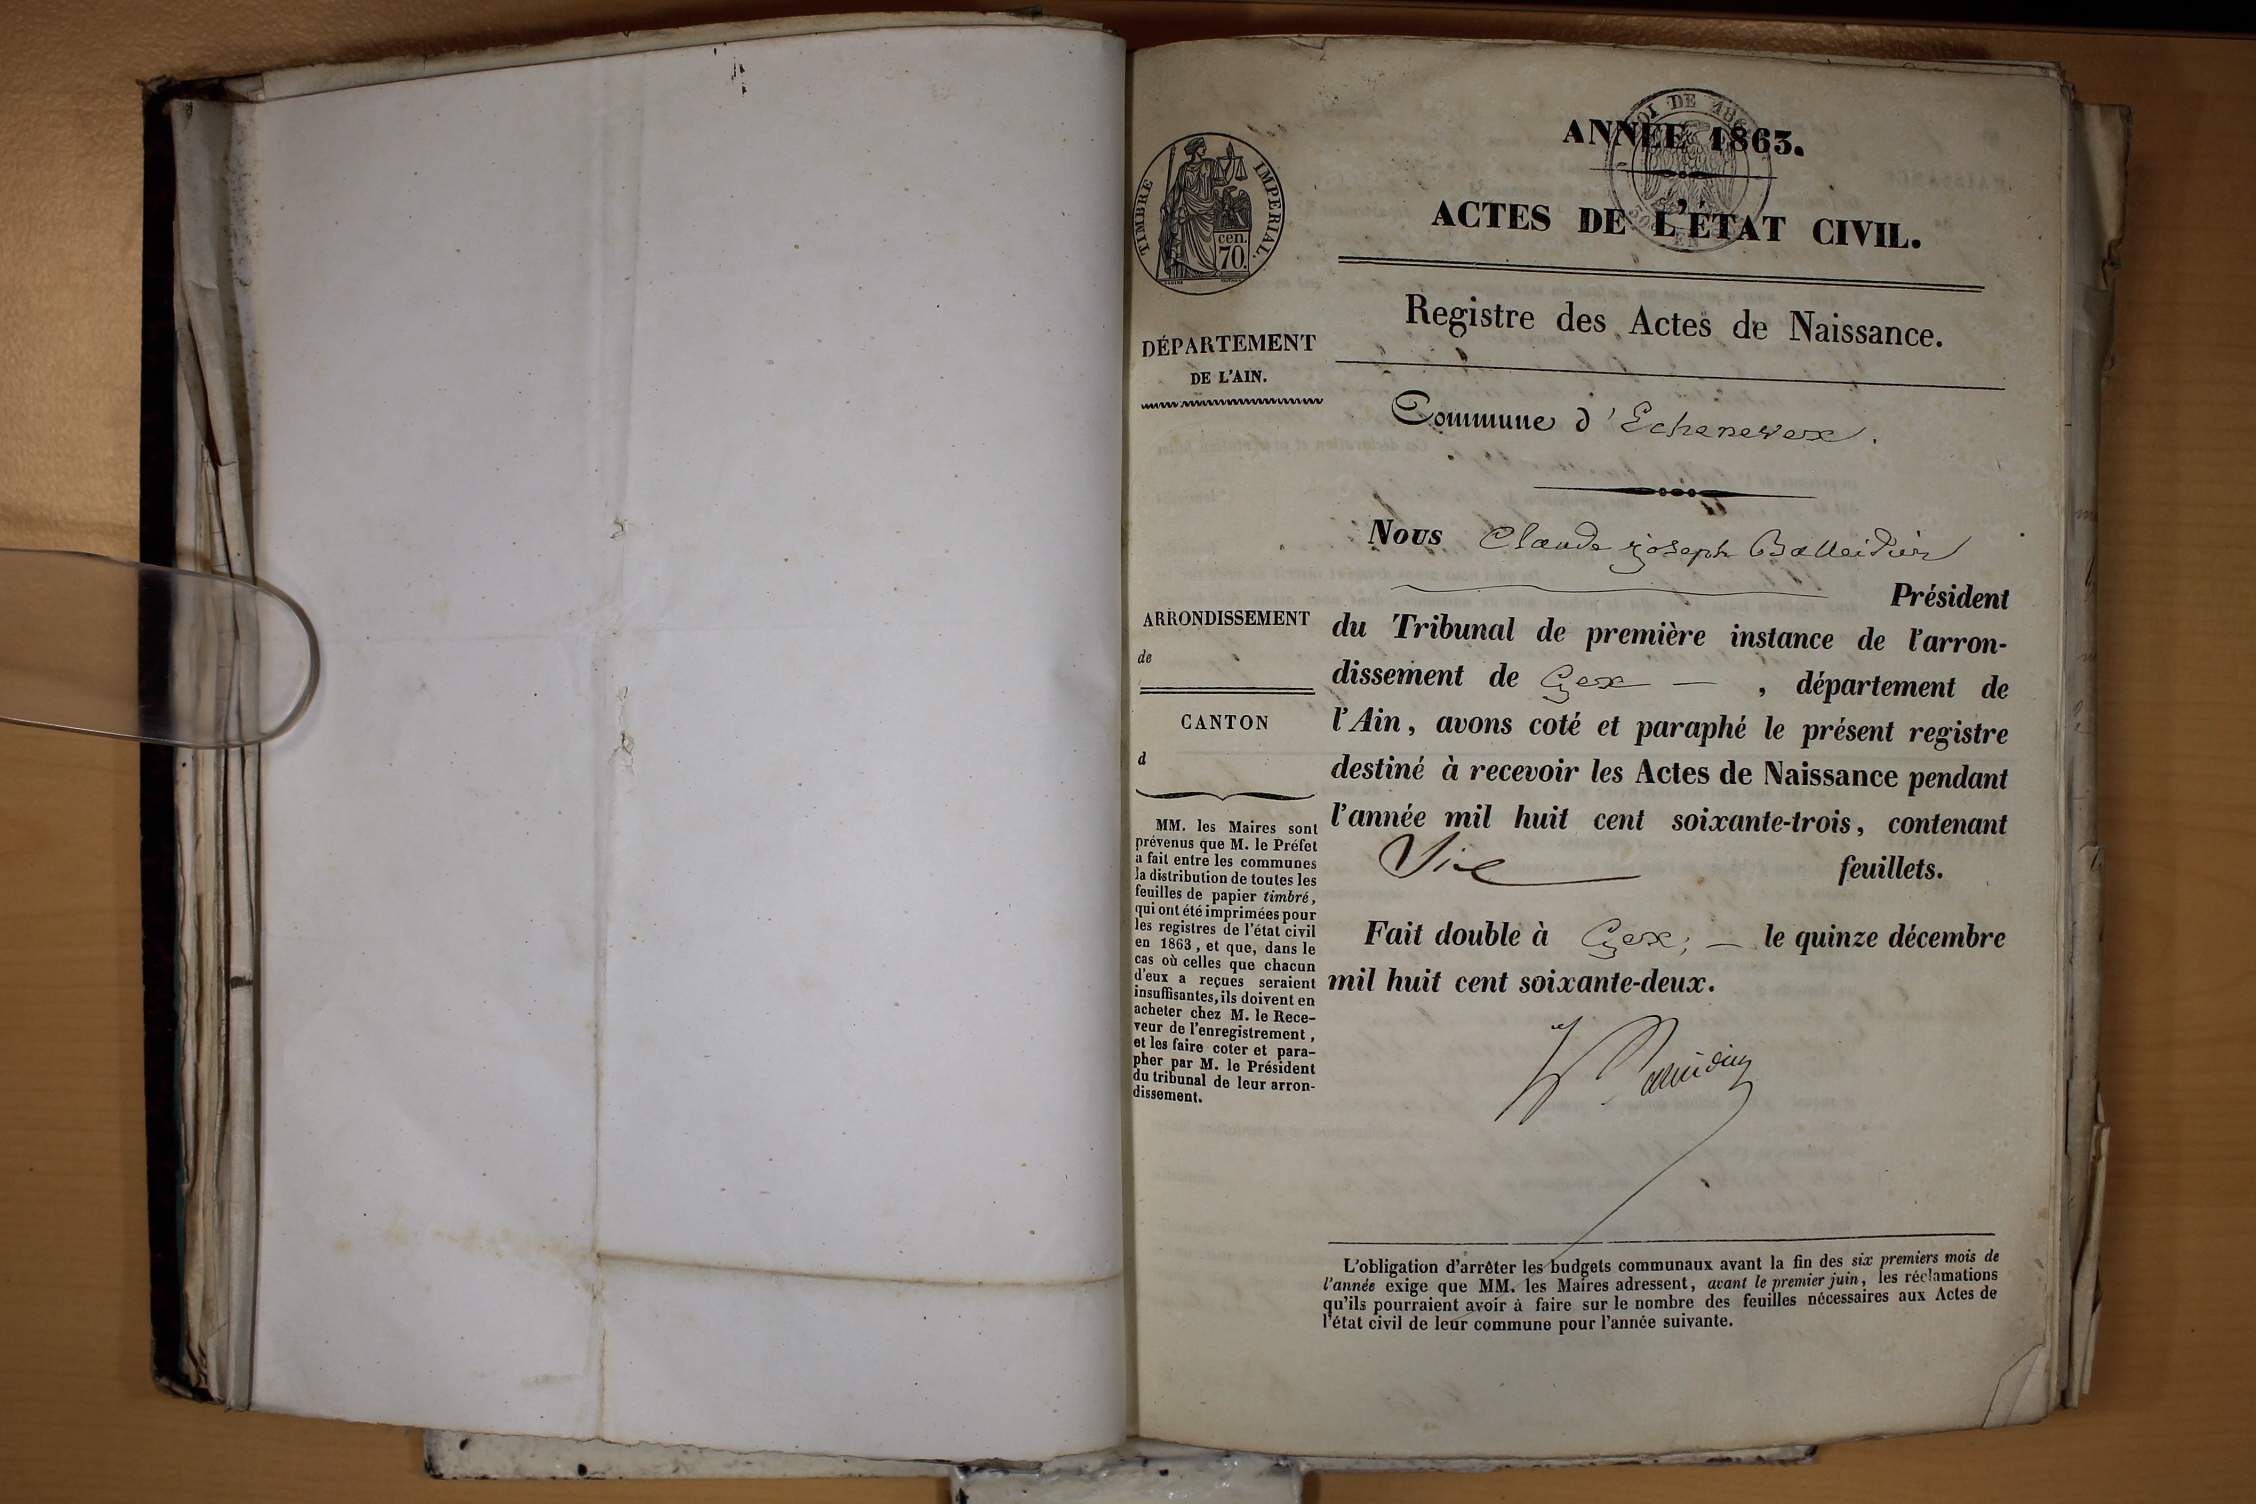 LOI DE 186
ANNÉE 1863.
TIMBRE IMPERIAL.
cen.
70.
ACTES DE L'ÉTAT CIVIL.
50c EN
Registre des Actes de Naissance.
DÉPARTEMENT
DE L'AIN.
Commune d'Echenevex.
Nous Claude joseph Balleidier
Président
du Tribunal de première instance de l'arron-
dissement de Gex — , département de
l'Ain, avons coté et paraphé le présent registre
destiné à recevoir les Actes de Naissance pendant
l'année mil huit cent soixante-trois, contenant
Six feuillets.
Fait double à Gex; — le quinze décembre
mil huit cent soixante-deux.
ARRONDISSEMENT
de
CANTON
d
MM. les Maires sont
prévenus que M. le Préfet
a fait entre les communes
la distribution de toutes les
feuilles de papier timbré,
qui ont été imprimées pour
les registres de l'état civil
en 1863, et que, dans le
cas où celles que chacun
d'eux a reçues seraient
insuffisantes, ils doivent en
acheter chez M. le Rece-
veur de l'enregistrement,
et les faire coter et para-
pher par M. le Président
du tribunal de leur arron-
dissement.
L'obligation d'arrêter les budgets communaux avant la fin des six premiers mois de
l'année exige que MM. les Maires adressent, avant le premier juin, les réclamations
qu'ils pourraient avoir à faire sur le nombre des feuilles nécessaires aux Actes de
l'état civil de leur commune pour l'année suivante.